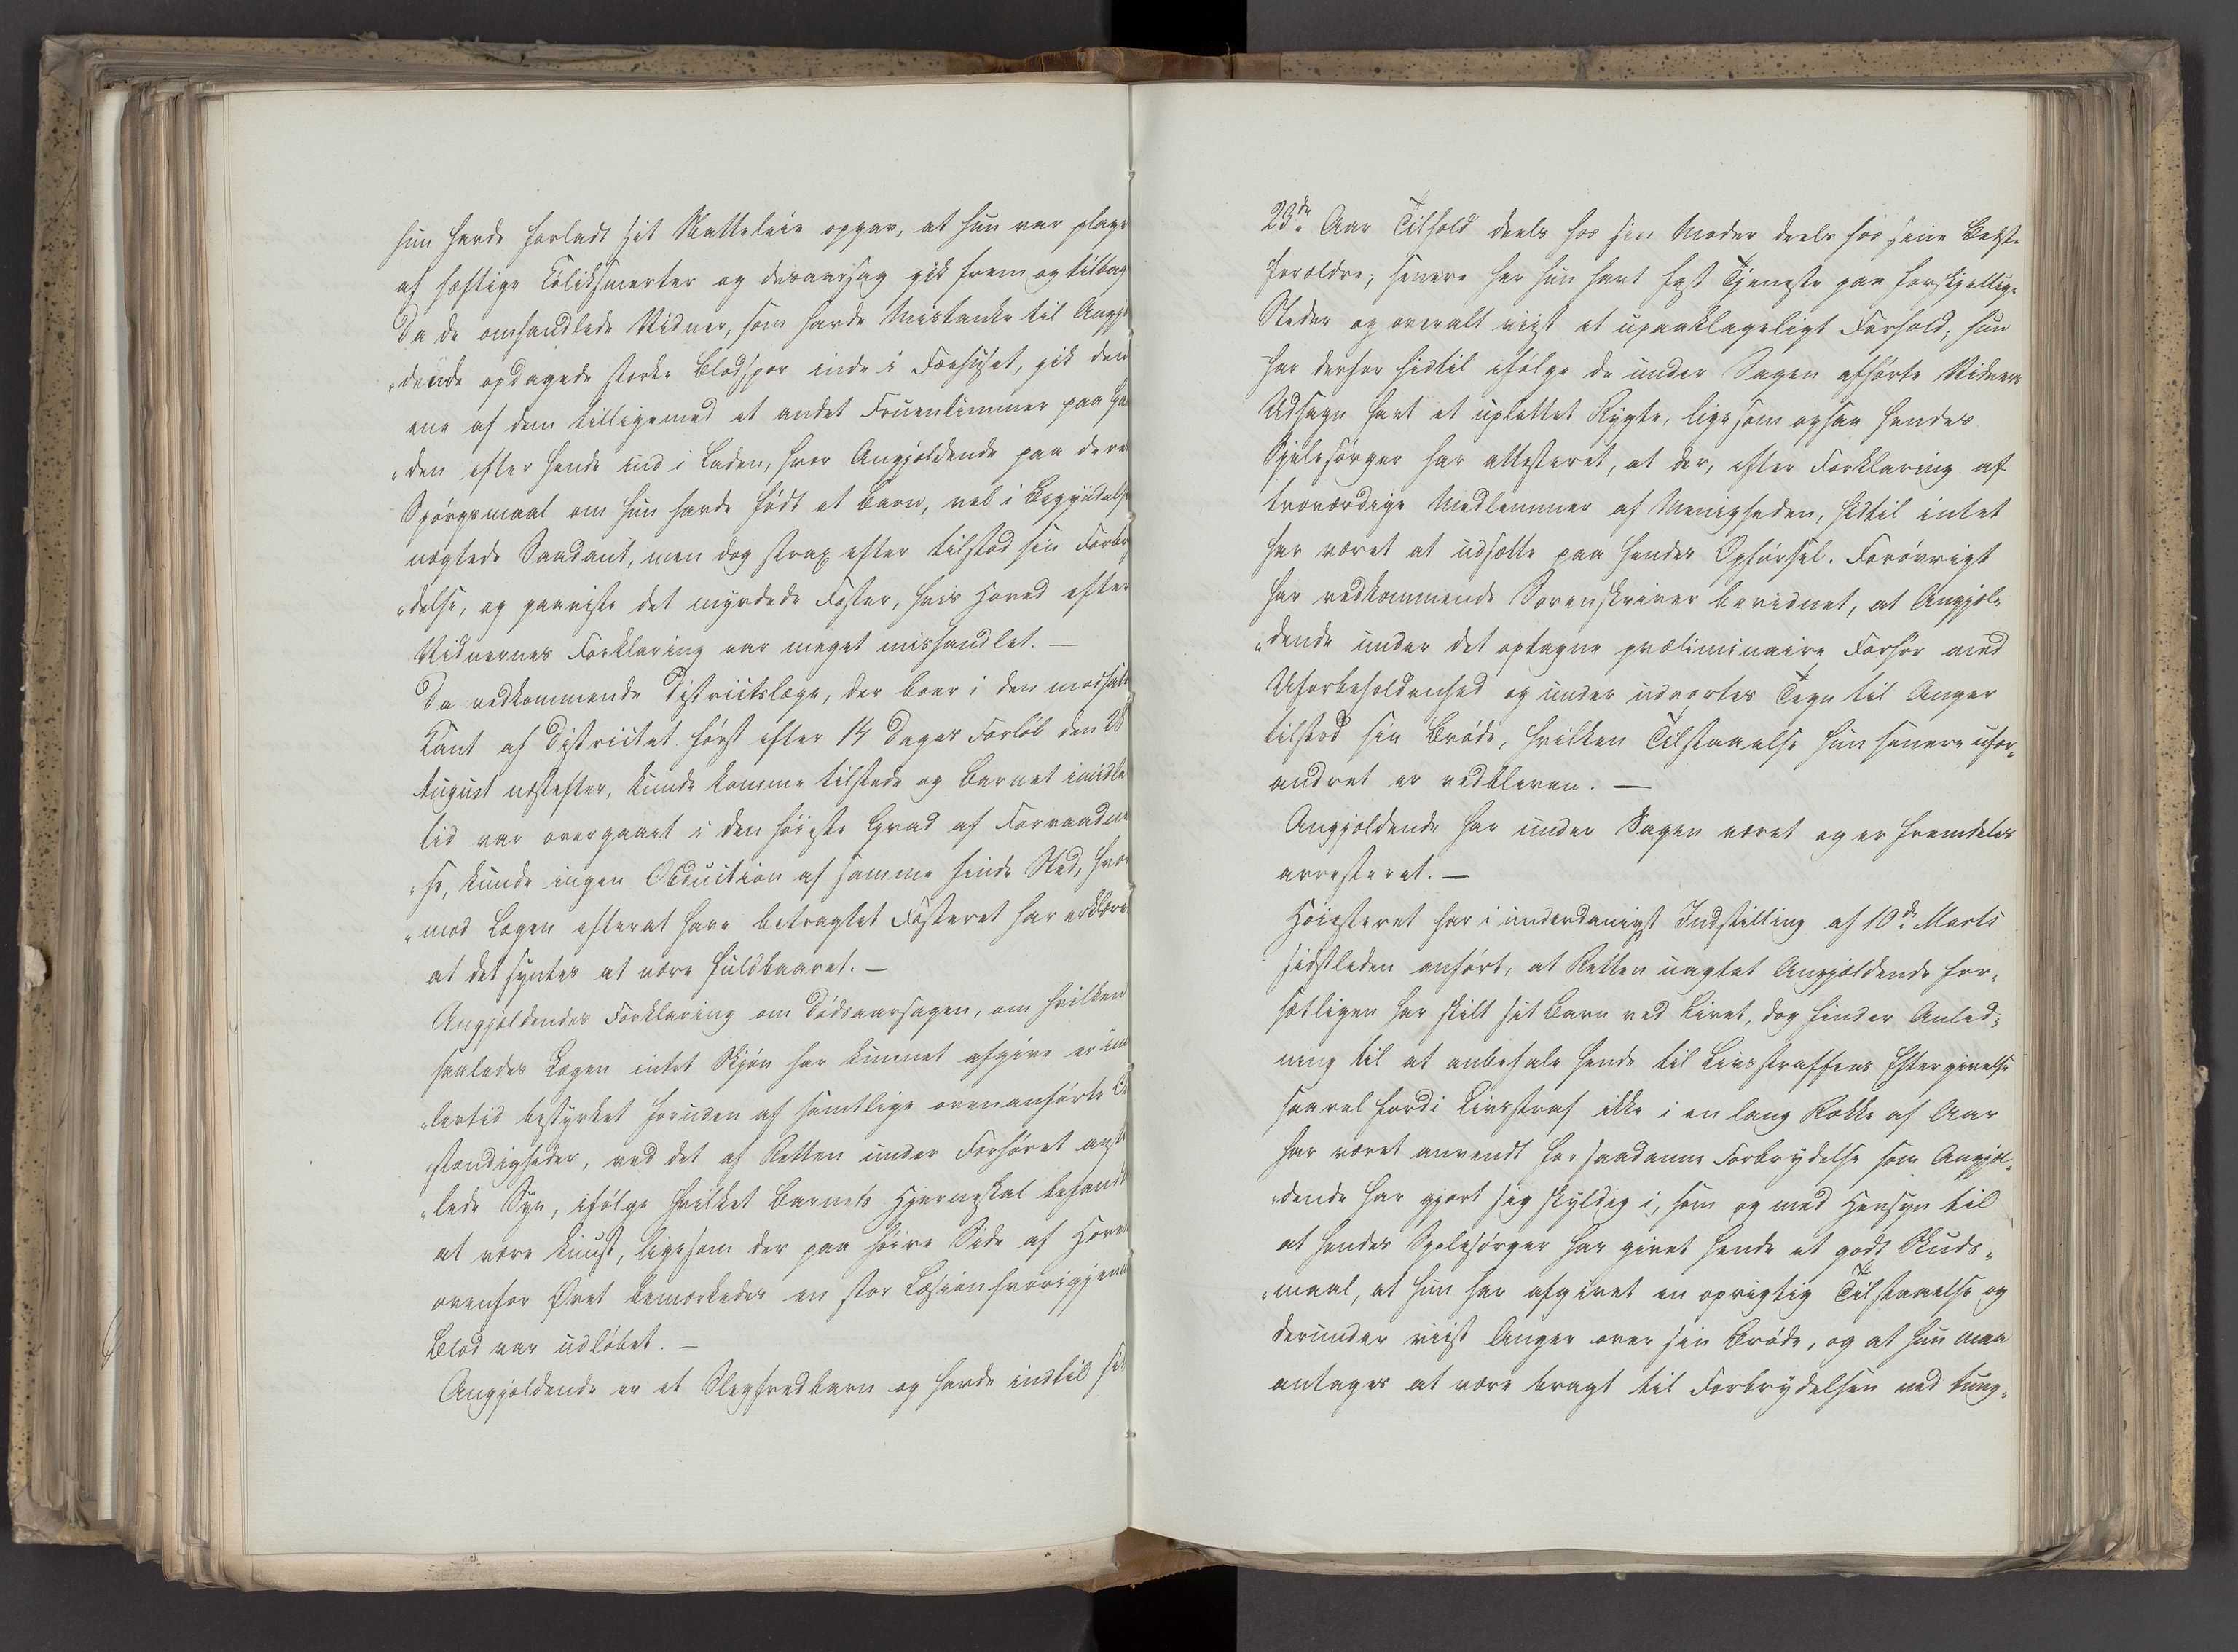 hun havde forladt sit Natteleie opgav, at hun var plage
af heftige Koliksmerter og desaarsag gik frem og tilbag
Da de omhandlede Vidner, som havde Mistanke til Angjæl
„dende opdagede stærke Blodspor inde i Fæehuset, gik den
ene af dem tilligemed et andet Fruentimmer paa Gaa
„den efter hende ind i Laden, hvor Angjældende paa dere
Spørgsmaal om hun havde født et Barn, vel i Begyndelse
nægtede Saadant, men dog strax efter tilstod sin Forbry
„delse, og paaviste det myrdede Foster, hvis Hoved efter
Vidnernes Forklaring var meget mishandlet. —
Da vedkommende Districtslæge, der boer i den modsatte
Kant af Districtet først efter 14 Dages Forløb den 28
August næstefter, kunde komme tilstede og Barnet imidle
tid var overgaaet i den høieste Grad af Forraadne
„se, kunde ingen Obduction af samme finde Sted, hvor
„mod Lægen efterat have betragtet Fosteret har erklære
at det syntes at være fuldbaaret. —
Angjældendes Forklaring om Dødsaarsagen, om hvilken
saaledes Lægen intet Skjøn har kunnet afgive er im
„lertid bestyrket foruden af samtlige ovenanførte O
„stændigheder, ved det af Retten under Forhøret anst
„lede Syn, ifølge hvilket Barnets Hjerneskal befandt
at være knust, ligesom der paa høire Side af Hove
ovenfor Øret bemærkedes en stor Læsion hvorigjenn
Blod var udløbet. —
Angjældende er et Slegfredbarn og havde indtil sit
23de Aar Tilhold deels hos sin Moder deels hos sine Bedste
forældre; senere har hun havt fast Tjeneste paa forskjellige
Steder og overalt viist et upaaklageligt Forhold; hun
har derfor hidtil ifølge de under Sagen afhørte Vidners
Udsagn havt et uplettet Rygte, ligesom ogsaa hendes
Sjelesørger har attesteret, at der, efter Forklaring af
troværdige Medlemmer af Menigheden, hidtil intet
har været at udsætte paa hendes Opførsel. Forøvrigt
har vedkommende Sorenskriver bevidnet, at Angjæl„
„dende under det optagne præliminaire Forhør med
Uforbeholdenhed og under udvortes Tegn til Anger
tilstod sin Brøde, hvilken Tilstaaelse hun senere ufor„
andret er vedbleven. —
Angjældende har under Sagen været og er fremdeles
arresteret. —
Høiesteret har i underdanigst Indstilling af 10de Marts
sidstleden anført, at Retten uagtet Angjældende for„
sætligen har skilt sit Barn ved Livet, dog finder Anled„
ning til at anbefale hende til Livsstraffens Eftergivelse
saavel fordi Livsstraf ikke i en lang Række af Aar
har været anvendt for saadanne Forbrydelse som Angjæl„
„dende har gjort sig skyldig i, som og med Hensyn til
at hendes Sjelesørger har givet hende et godt Skuds„
„maal, at hun har afgivet en oprigtig Tilstaaelse og
derunder viist Anger over sin Brøde, og at hun maa
antages at være bragt til Forbrydelsen ved tung„